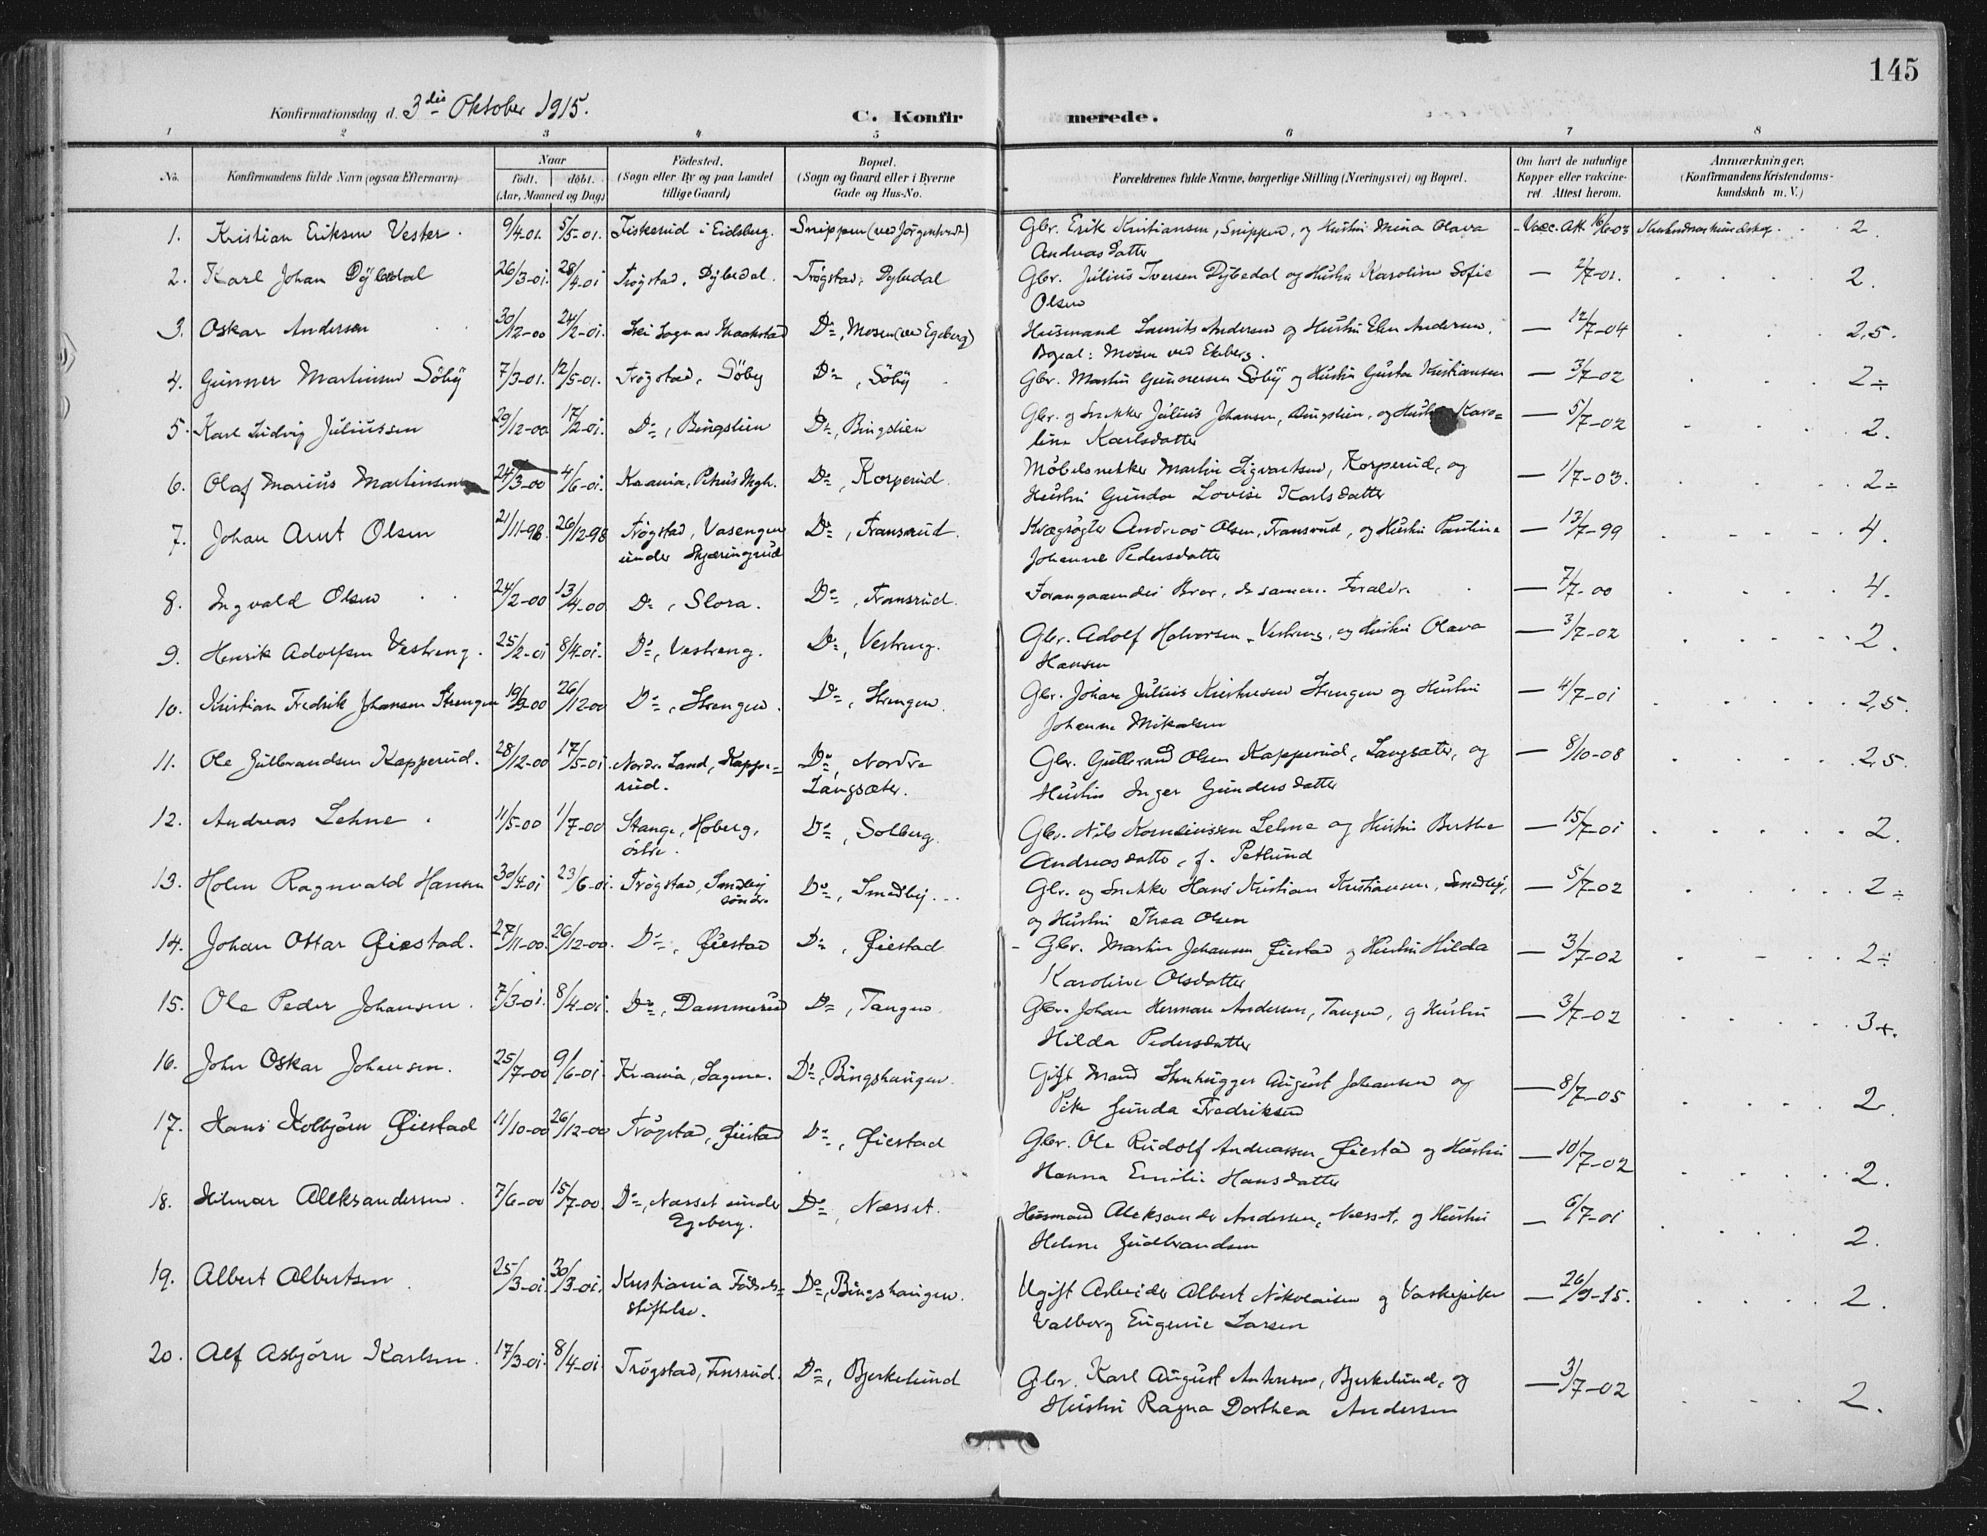 145
Konfirmationsdag d. 3die Oktober 1915.
C. Konfirmerede.
1 2 3 4 5 6 7 8
No. Konfirmandens fulde Navn (ogsaa Efternavn) Naar født. døbt. (Aar, Maaned og Dag) Fødested. (Sogn eller By og paa Landet tillige Gaard) Bopæl. (Sogn og Gaard eller i Byerne Gade og Hus-No. Forældrenes fulde Navne, borgerlige Stilling (Næringsvei) og Bopæl. Om havt de naturlige Kopper eller vakcineret. Attest herom. Anmærkninger. (Konfirmandens Kristendomskundskab m. V.)
1. Kristian Eriksen Vester. 9/4-01. 5/5-01. Fiskerud i Eidsberg. Snippen (ved Jørgentvedt) Gbr. Erik Kristiansen, Snippen, og Hustru Mina Olava Vacc. Att. 16/6-03 Kristendomskundskap 2.
Andreas Datter
2. Karl Johan Dybedal 26/3-01 28/4-01 Trøgstad, Dybedal. Trøgstad, Dybedal Gbr. Julius Iversen Dybedal og Hustru Karoline Sofie — 2/7-01. 2.
Olsen
3. Oskar Andersen 30/12-00 24/2-01. Ski Sogn av Kraakstad Do, Mosen (ved Egeberg) Husmand Laurits Andersen og Hustru Elen Andersen. — 12/7-04 2,5.
Bopæl: Mosen ved Ekeberg.
4. Gunner Martinsen Søby 7/3-01. 12/5-01. Trøgstad, Søby Do, Søby Gbr. Martin Gunnersen Søby og Hustru Gusta Kristiansen — 3/7-02 2÷
5. Karl Ludvig Juliussen 29/12-00 17/2-01. Do, Bingslien Do, Bingslien Gbr. og Snekker Julius Johansen, Bingslien, og Hustru Karo= — 5/7-02 2.
line Karlsdatter
6. Olaf Marius Martinsen 24/3-00 4/6-01. Kr.ania, Petrus Mgh. Do, Korperud. Møbelsnekker Martin Sigvartsen, Korperud, og — 1/7-03. 2÷
Hustru Gunda Lovise Karlsdatter
7. Johan Arnt Olsen 21/11-98. 26/12-98 Trøgstad, Vasengen under Skjæringrud Do, Fransrud. Kvægrøgter Andreas Olsen, Fransrud, og Hustru Pauline — 13/7-99 4.
Johanne Pedersdatter
8. Ingvald Olsen 24/2-00 13/4-00 Do, Slora. Do, Fransrud. Foregaaendes Bror, de samme Forældr. — 7/7-00 4.
9. Henrik Adolfsen Vestreng. 25/2-01 8/4-01. Do, Vestreng. Do, Vestreng. Gbr. Adolf Halvorsen Vestreng, og Hustru Olava — 3/7-02 2.
Hansen
10. Kristian Fredrik Johansen Strengen 19/9-00 26/12-00 Do, Strengen. Do, Strengen. Gbr. Johan Julius Kristensen Strengen og Hustru — 4/7-01 2,5.
Johanne Mikalsen
11. Ole Gulbrandsen Kapperud. 28/12-00 17/5-01. Nordre Land, Kappe=rud. Do, Nordre Langsæter. Gbr. Gulbrand Olsen Kapperud, Langsæter, og — 8/10-08 2,5.
Hustru Inger Gunders datter
12. Andreas Lehne. 11/5-00 1/7-00 Stange, Hoberg, østre. Do, Solberg. Gbr. Nils Korneliussen Lehne og Hustru Berthe — 15/7-01 2.
Andreas datter, f. Petlund
13. Holm Ragnvald Hansen 30/4-01 23/6-01. Trøgstad, Smedby søndr. Do, Smedby... Gbr. og Snekker Hans Kristian Kristiansen, Smedby, — 5/7-02 2÷
og Hustru Thea Olsen
14. Johan Ottar Øiestad. 27/11-00. 26/12-00. Do, Øiestad Do, Øiestad Gbr. Martin Johansen Øiestad og Hustru Hilda — 3/7-02 2÷
Karoline Olsdatter
15. Ole Peder Johansen. 7/3-01. 8/4-01. Do, Dammerud Do, Tangen. Gbr. Johan Herman Andersen, Tangen, og Hustru — 3/7-02 3+.
Hilda Pedersdatter
16. John Oskar Johansen. 25/7-00 9/6-01 Kr.ania, Sagene. Do, Bingshaugen. Gift Mand Stenhugger August Johansen og — 8/7-05 2.
Pike Gunda Fredriksen
17. Hans Kolbjørn Øiestad 11/10-00 26/12-00 Trøgstad, Øiestad Do, Øiestad Gbr. Ole Rudolf Andreassen Øiestad og Hustru — 10/7-02 2.
Hanna Emilie Hansdatter
18. Hilmar Aleksandersen. 7/6-00 15/7-00. Do, Næsset under Egeberg. Do, Næsset. Husmand Aleksander Andersen, Næsset, og Hustru — 6/7-01 2.
Helene Gudbrandsen
19. Albert Albertsen 25/3-01. 30/3-01. Kristiania Fødsels=stiftelse. Do, Bingshaugen. Ugift Arbeider Albert Nikolaisen og Vaskepike — 26/9-15. 2.
Valborg Eugenie Larsen
20. Alf Asbjørn Karlsen. 17/3-01. 8/4-01 Trøgstad, Finsrud. Do, Bjerkelund Gbr. Karl August Antonsen, Bjerkelund, og — 3/7-02 2.
Hustru Ragna Dorthea Andersen